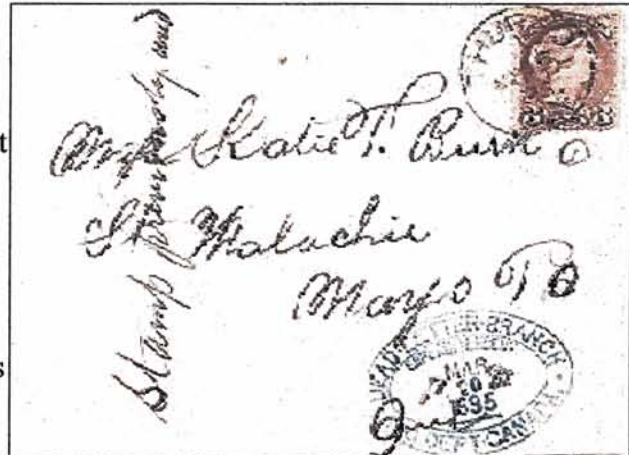 Stamp previously used
Miss Katie T. Burns
St Malachie
Mayo P O
Que
DEAD LETTER BRANCH
MAR
20
1895
P.O. DEPT CANADA
HU
3
t
s